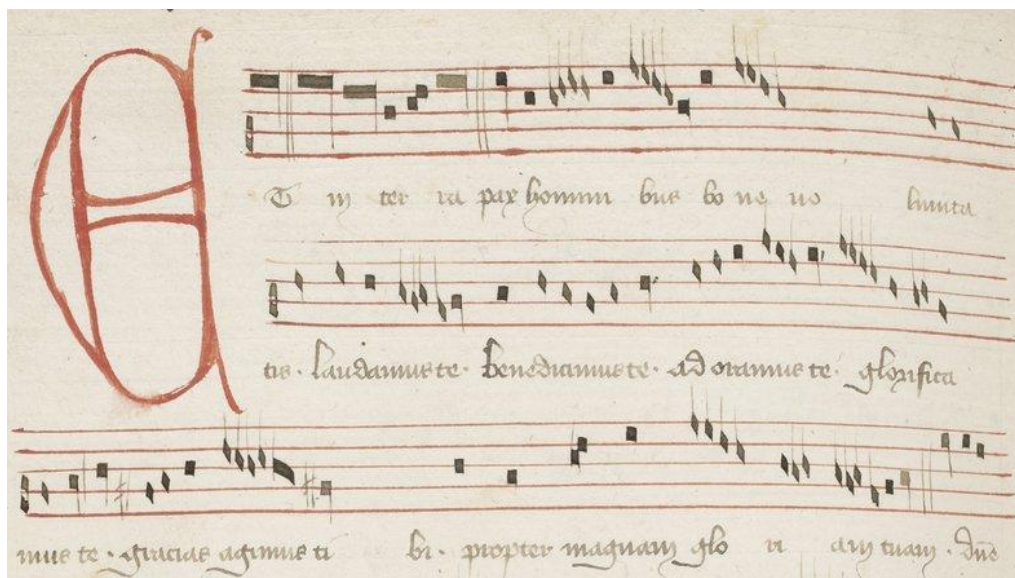 ET in ter ra pax homini bus bo ne vo luntta
tis · laudamus te · benedicimus te · ad oramus te · glorifica
mus te · gracias agimus ti bi · propter magnam glo ri am tuam · dn̄e